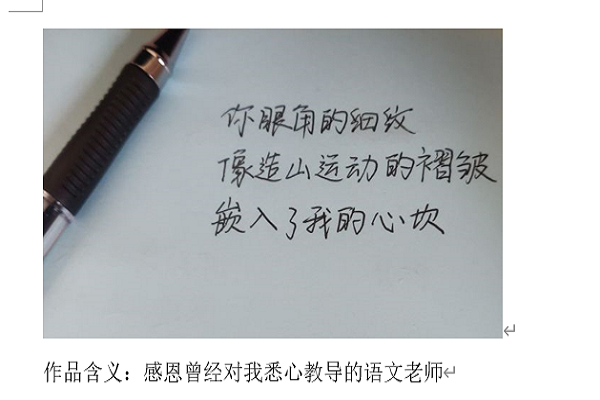 你眼角的细纹
像造山运动的褶皱
嵌入了我的心坎
作品含义：感恩曾经对我悉心教导的语文老师